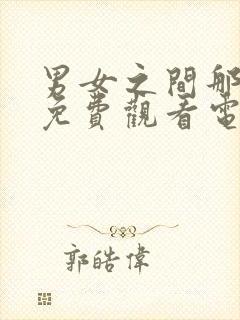 男女之間那
免費觀看電
郭皓偉